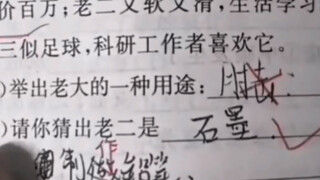 价百万;老二又软又滑,生活学习
三似足球,科研工作者喜欢它。
)举出老大的一种用途:
)请你猜出老二是 石墨.
制做铅